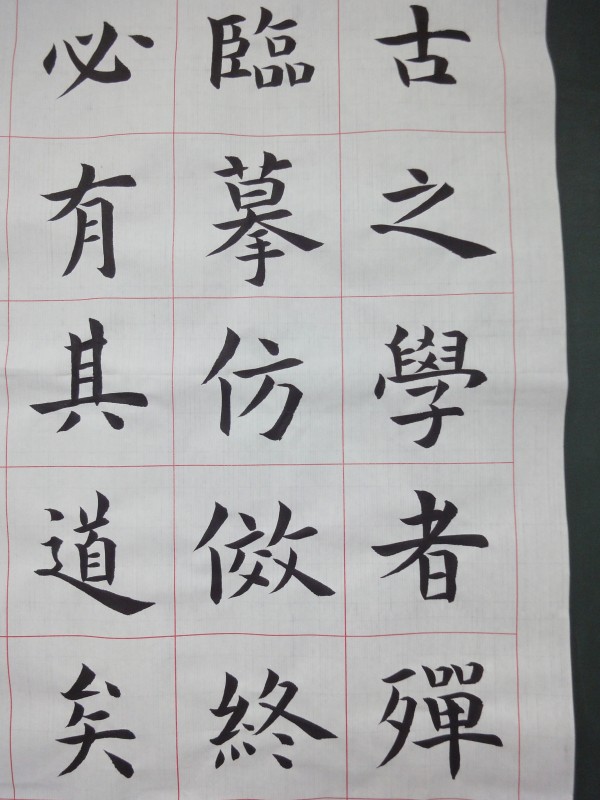 古之學者殫
臨摹仿傚終
必有其道矣